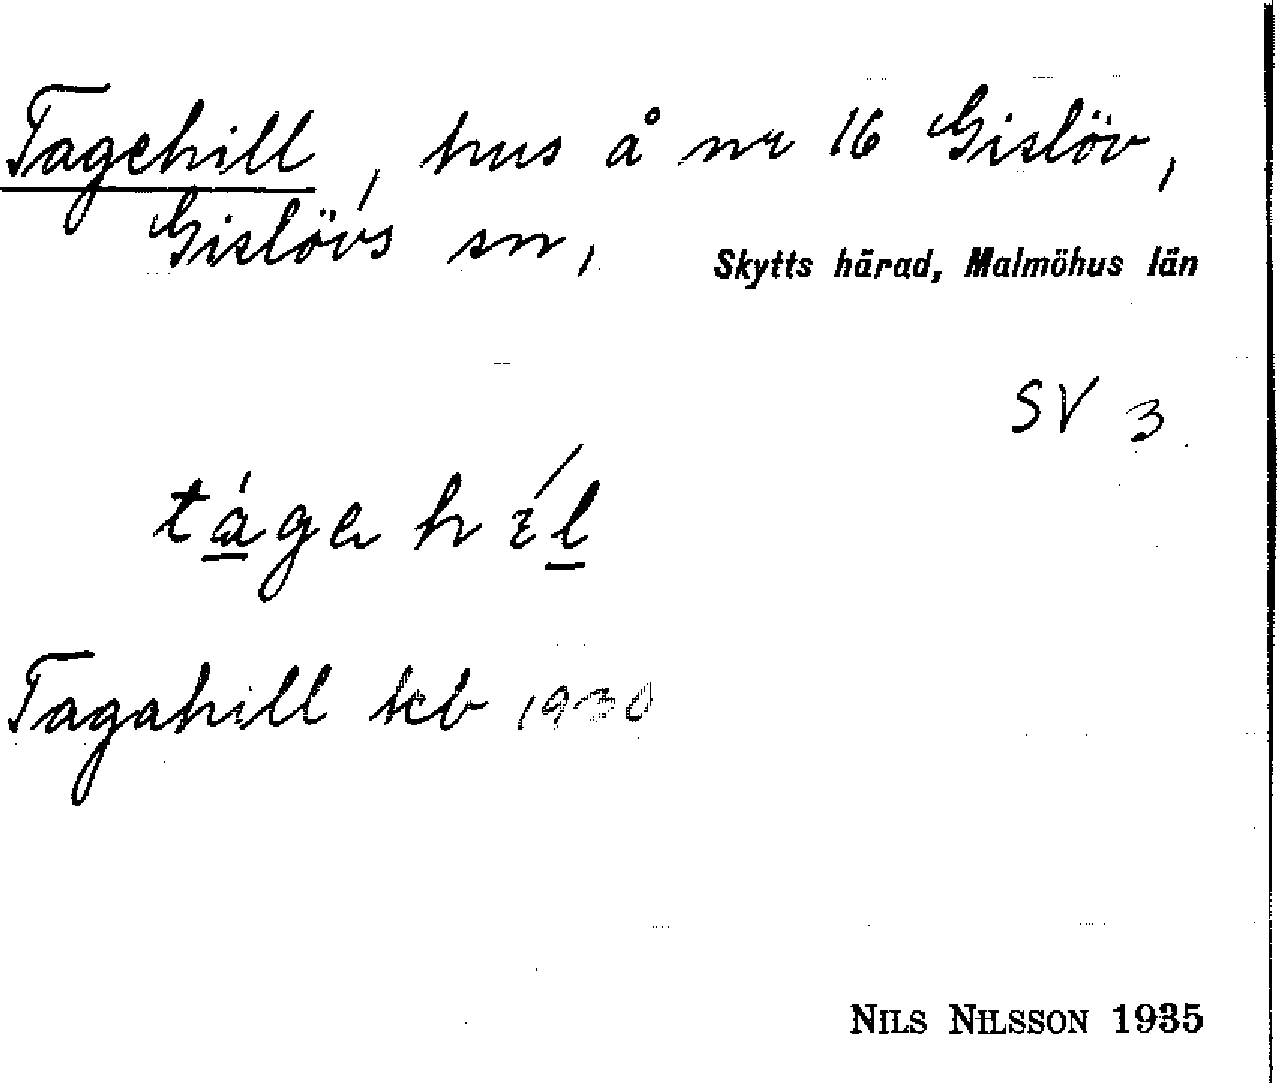 Tagehill, hus å nr 16 Gislöv,
Gislövs sn, Skytts härad, Malmöhus län
SV 3
tága híl
Tagahill kcb 1930
NILS NILSSON 1935